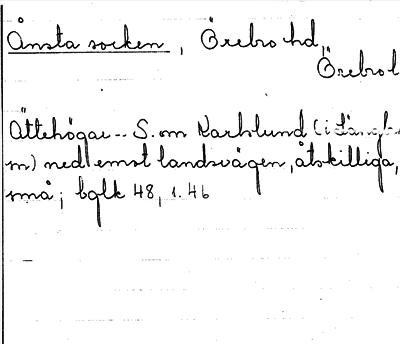 Ånsta socken, Örebro hd,
Örebro l
Ättehögar -- S. om Karlslund (i
m) ned emot landsvägen, åtskilliga,
små; bglk 48, 1.46